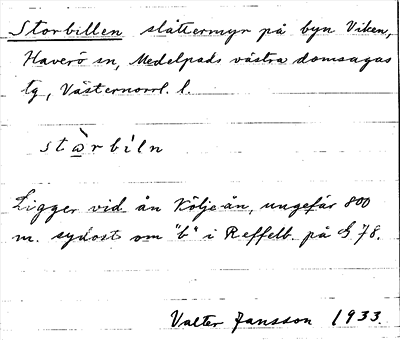 Storbillen slåttermyr på byn Viken,
Haverö sn, Medelpads västra domsagas
tg, Västernorrl. l.
stɷ̀rbíln
Ligger vid ånKöljeån, ungefär 800
m. sydost om "b" i Reffelb. på G 78.
Valter Jansson 1933.